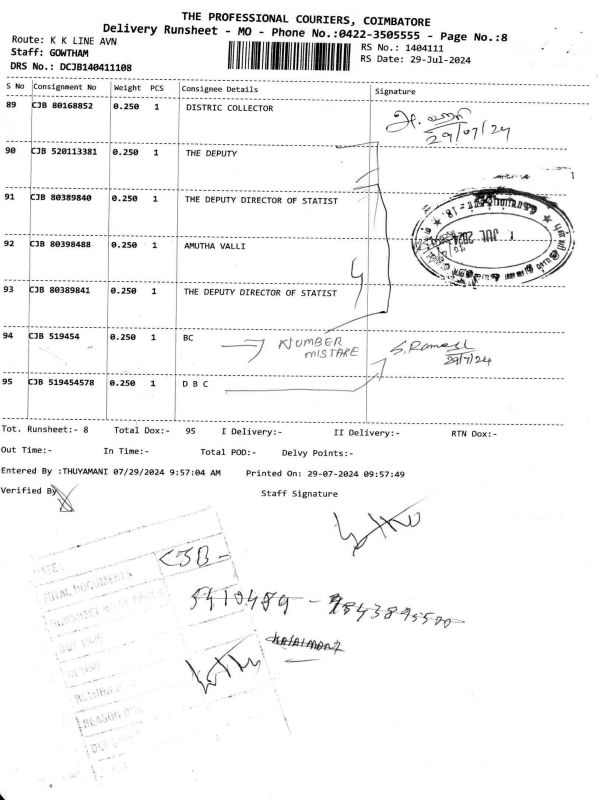 THE PROFESSIONAL COURIERS, COIMBATORE
Delivery Runsheet - MO - Phone No.:0422-3505555 - Page No.:8
Route: K K LINE AVN
RS No.: 1404111
Staff: GOWTHAM
RS Date: 29-Jul-2024
DRS No.: DCJB140411108
S No Consignment No Weight PCS Consignee Details Signature
89 CJB 80168852 0.250 1 DISTRIC COLLECTOR
29/07/24
90 CJB 520113381 0.250 1 THE DEPUTY
91 CJB 80389840 0.250 1 THE DEPUTY DIRECTOR OF STATIST
92 CJB 80398488 0.250 1 AMUTHA VALLI
93 CJB 80389841 0.250 1 THE DEPUTY DIRECTOR OF STATIST
94 CJB 519454 0.250 1 BC
NUMBER
MISTAKE
S. Ramesh
29/7/24
95 CJB 519454578 0.250 1 D B C
Tot. Runsheet:- 8 Total Dox:- 95 I Delivery:- II Delivery:- RTN Dox:-
Out Time:- In Time:- Total POD:- Delvy Points:-
Entered By :THUYAMANI 07/29/2024 9:57:04 AM Printed On: 29-07-2024 09:57:49
Verified By
Staff Signature
DATE :
TOTAL DOCUMENTS